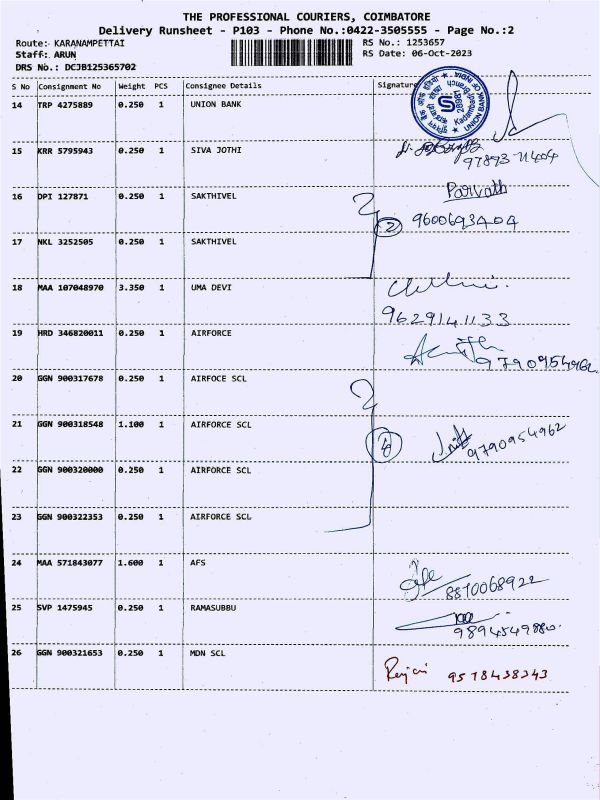 THE PROFESSIONAL COURIERS, COIMBATORE
Delivery Runsheet - P103 - Phone No.:0422-3505555 - Page No.:2
Route: KARANAMPETTAI
RS No.: 1253657
Staff: ARUN
RS Date: 06-Oct-2023
DRS No.: DCJB125365702
S No Consignment No Weight PCS Consignee Details Signature
14 TRP 4275889 0.250 1 UNION BANK
UNION BANK OF INDIA
15 KRR 5795943 0.250 1 SIVA JOTHI
97893 71404
16 DPI 127871 0.250 1 SAKTHIVEL Parvath
2 9600693404
17 NKL 3252505 0.250 1 SAKTHIVEL
18 MAA 107048970 3.350 1 UMA DEVI
9629141133
19 HRD 346820011 0.250 1 AIRFORCE
9790954962
20 GGN 900317678 0.250 1 AIRFOCE SCL
21 GGN 900318548 1.100 1 AIRFORCE SCL
4 9790954962
22 GGN 900320000 0.250 1 AIRFORCE SCL
23 GGN 900322353 0.250 1 AIRFORCE SCL
24 MAA 571843077 1.600 1 AFS
8870068922
25 SVP 1475945 0.250 1 RAMASUBBU
9894549880
26 GGN 900321653 0.250 1 MDN SCL
9578438243